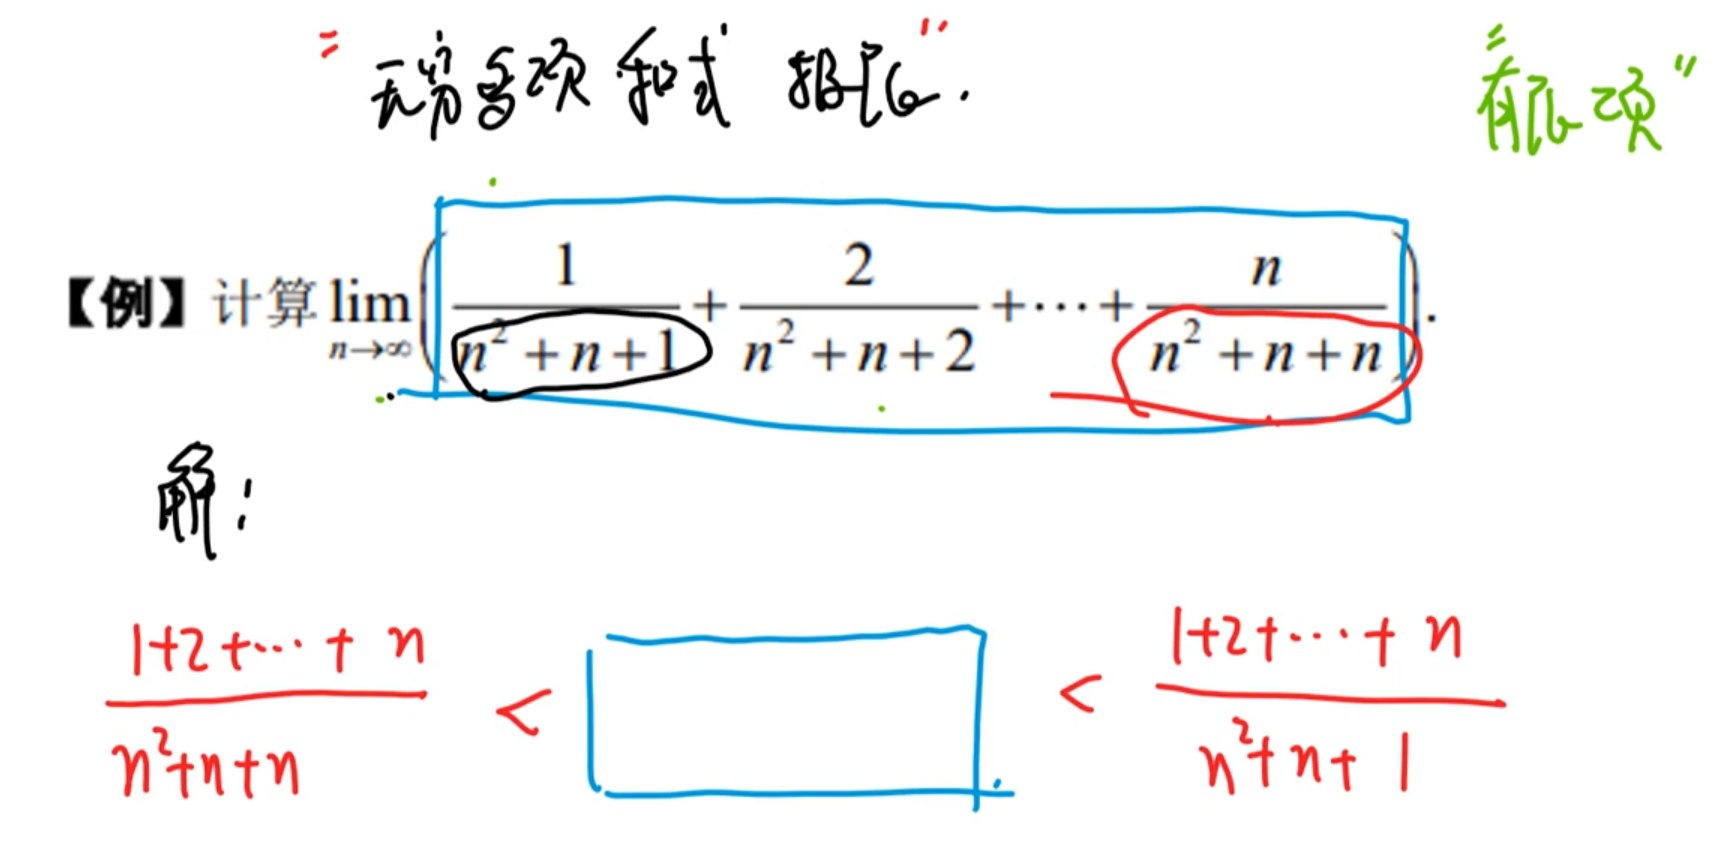 "无穷多项和式极限". "有限项"
【例】计算 lim_{n→∞} ( 1/(n²+n+1) + 2/(n²+n+2) + ··· + n/(n²+n+n) ).
解:
(1+2+···+n)/(n²+n+n) < □ < (1+2+···+n)/(n²+n+1)